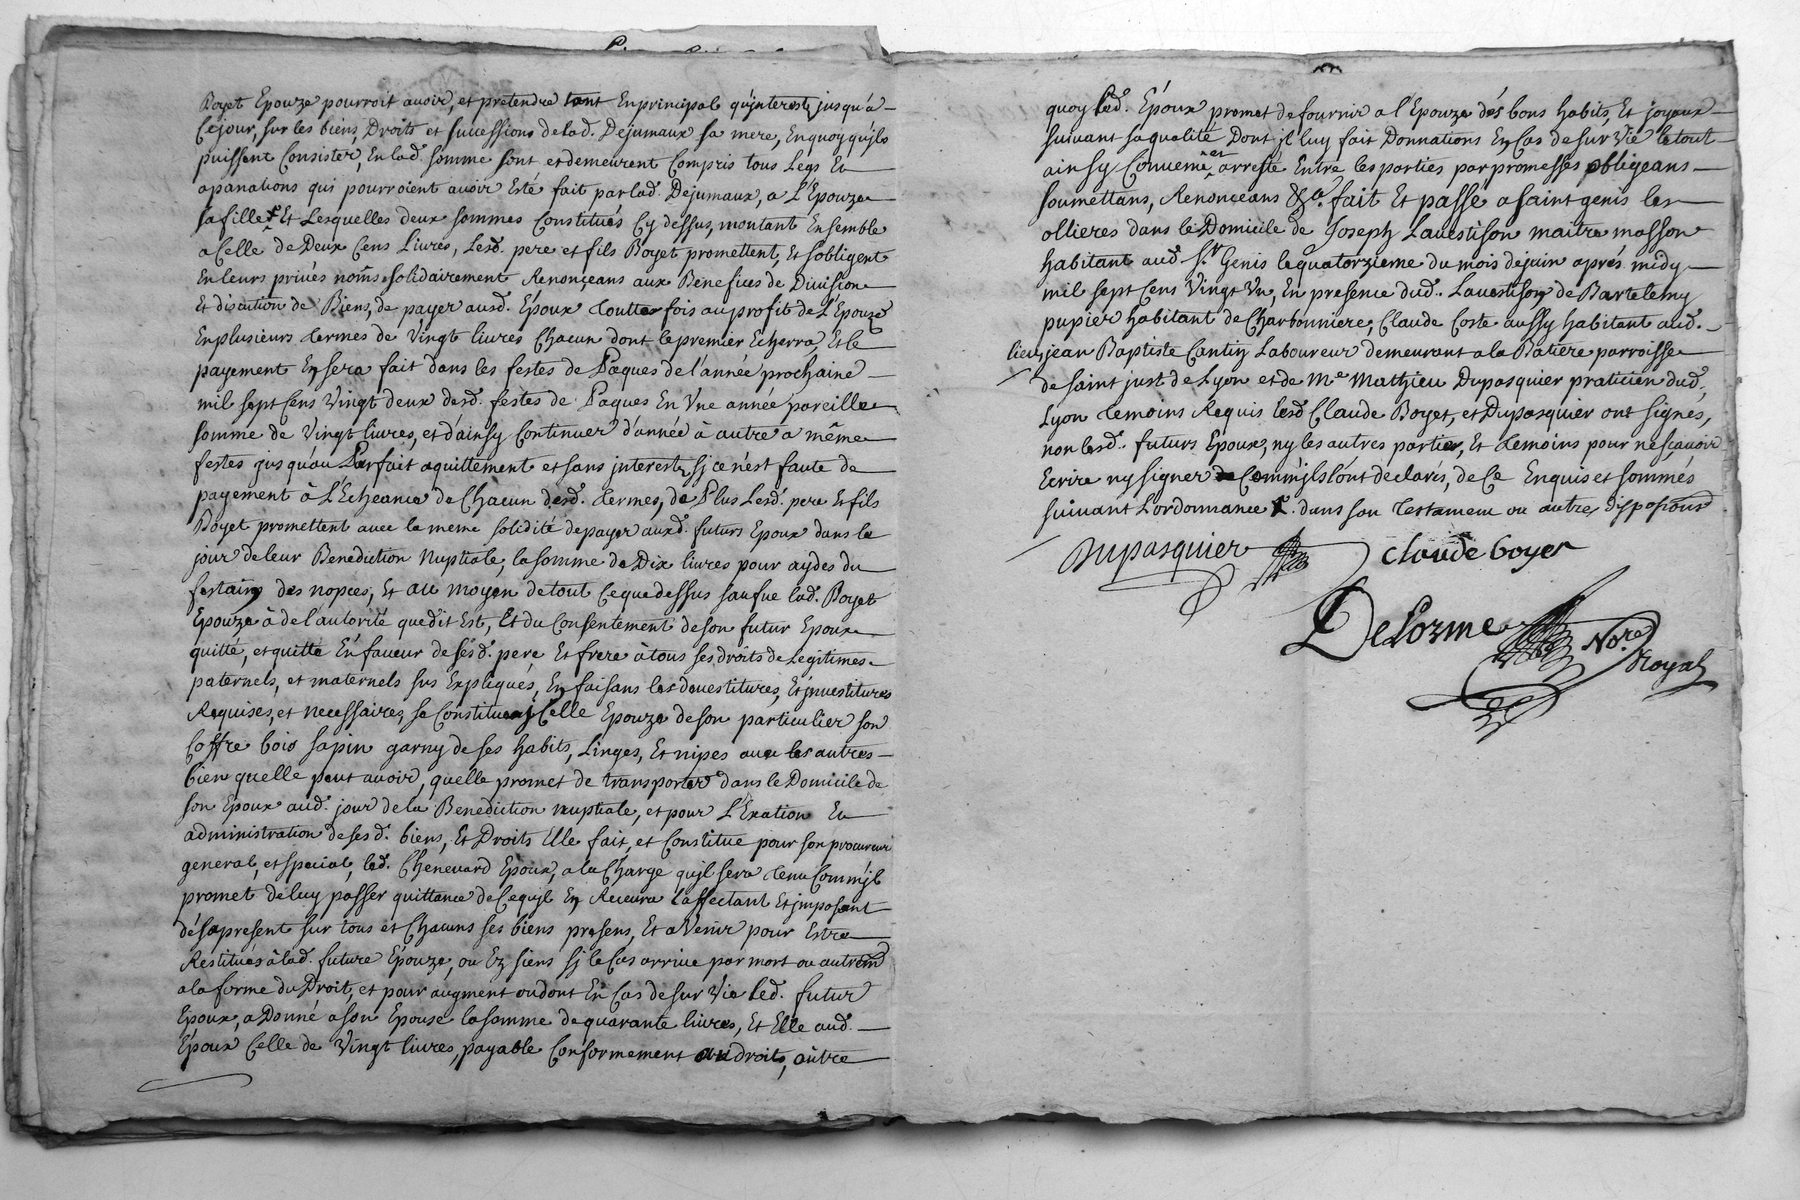 Boyet Epouze pourroit avoir, et pretendre tant En principal qu'jnterests jusqu'a
Cejour, sur les biens, Droits et successions de lad. Dejumaux sa mere, En quoy qu'jls
puissent Consister, En lad. somme sont et demeurent Compris tous Legs Et
apanations qui pourroient avoir Esté fait par lad. Dejumaux, a L'Epouze
sa fille + Et Lesquelles deux sommes Constitués Cy dessus, montant Ensemble
a Celle de Deux Cens Livres, Lesd. pere et fils Boyet promettent, Et s'obligent
En leurs privés noms solidairement Renonçeans aux Benefices de Division
Et discution de Biens, de payer aud. Epoux touttes fois au profit de L'Epouze
En plusieurs termes de Vingt livres Chacun dont le premier Echerra, Et le
payement En sera fait dans les festes de Pâques de l'année prochaine
mil sept Cens Vingt deux desd. festes de Paques En Vne année pareille
somme de Vingt livres, et d'ainsy Continuer d'année à autre a même
festes jusqu'au Parfait aquittement et sans jnterests sj ce n'est faute de
payement à L'Echeance de Chacun desd. termes, de Plus Lesd. pere Et fils
Boyet promettent avec la meme solidité de payer auxd. futurs Epoux dans le
jour de leur Benediction Nuptiale, la somme de Dix livres pour aydes du
festain des nopces, Et au moyen de tout Ce que dessus saufue lad. Boyet
Epouze à de l'autorité que dit Est, Et du Consentement de son futur Epoux
quitté, et quitte En faveur de sesd. pere Et frere à tous ses droits de Legitimes
paternels, et maternels sus Expliqués, En faisans les devestitures, Et jnvestitures
Requises, et necessaires, se Constituant jCelle Epouze de son particulier son
Coffre bois sapin garny de ses habits, Linges, Et nipes avec les autres
bien quelle peut avoir, quelle promet de transporter dans le Domicile de
son Epoux aud. jour de la Benediction nuptiale, et pour L'Exation Et
administration de sesd. biens, Et Droits Elle fait, et Constitue pour son procureur
general, et special, led. Chenevard Epoux, a la Charge qu'jl sera tenu Comm'jl
promet de luy passer quittance de Ce qu'jl En Recevra L'affectant Et jmposant
dés apresent sur tous et Chacuns ses biens presens, Et a Venir pour Estre
Restitués à lad. future Epouze, ou Ez siens sj le Cas arrive par mort ou autremt
a la forme du Droit, et pour augment ou dont En Cas de sur Vie led. futur
Epoux, a Donné a son Epouse la somme de quarante livres, Et Elle aud.
Epoux Celle de Vingt livres, payable Conformement au droits, outre
quoy led. Epoux promet de fournir a l'Epouze des bons habits, Et joyaux
suivant sa qualité Dont jl luy fait Donnations En Cas de sur Vie le tout
ainsy Convenu et arresté Entre les parties par promesses obligeans
soumettans, Renonçeans &ca. fait Et passé a saint genis les
ollieres dans le Domicile de Joseph Lavestison maitre masson
habitant aud. St Genis le quatorzieme du mois de juin aprés midy
mil sept Cens Vingt Vn, En presence dud. Lavestison, de Bartelemy
pupier habitant de Charbonniere, Claude Coste aussy habitant aud.
lieu, jean Baptiste Cantin Laboureur demeurant a la Batiere parroisse
de saint just de Lyon et de Me Mathieu Dupasquier praticien dud.
Lyon temoins Requis lesd Claude Boyet, et Dupasquier ont signés,
non lesd. futurs Epoux, ny les autres parties, Et temoins pour ne sçavoir
Ecrire ny signer Comm'jls l'ont declarés, de Ce Enquis et sommés
suivant L'ordonnance +. dans son testament ou autres dispositions
Dupasquier claude boyer
Delorme Nore
Royal